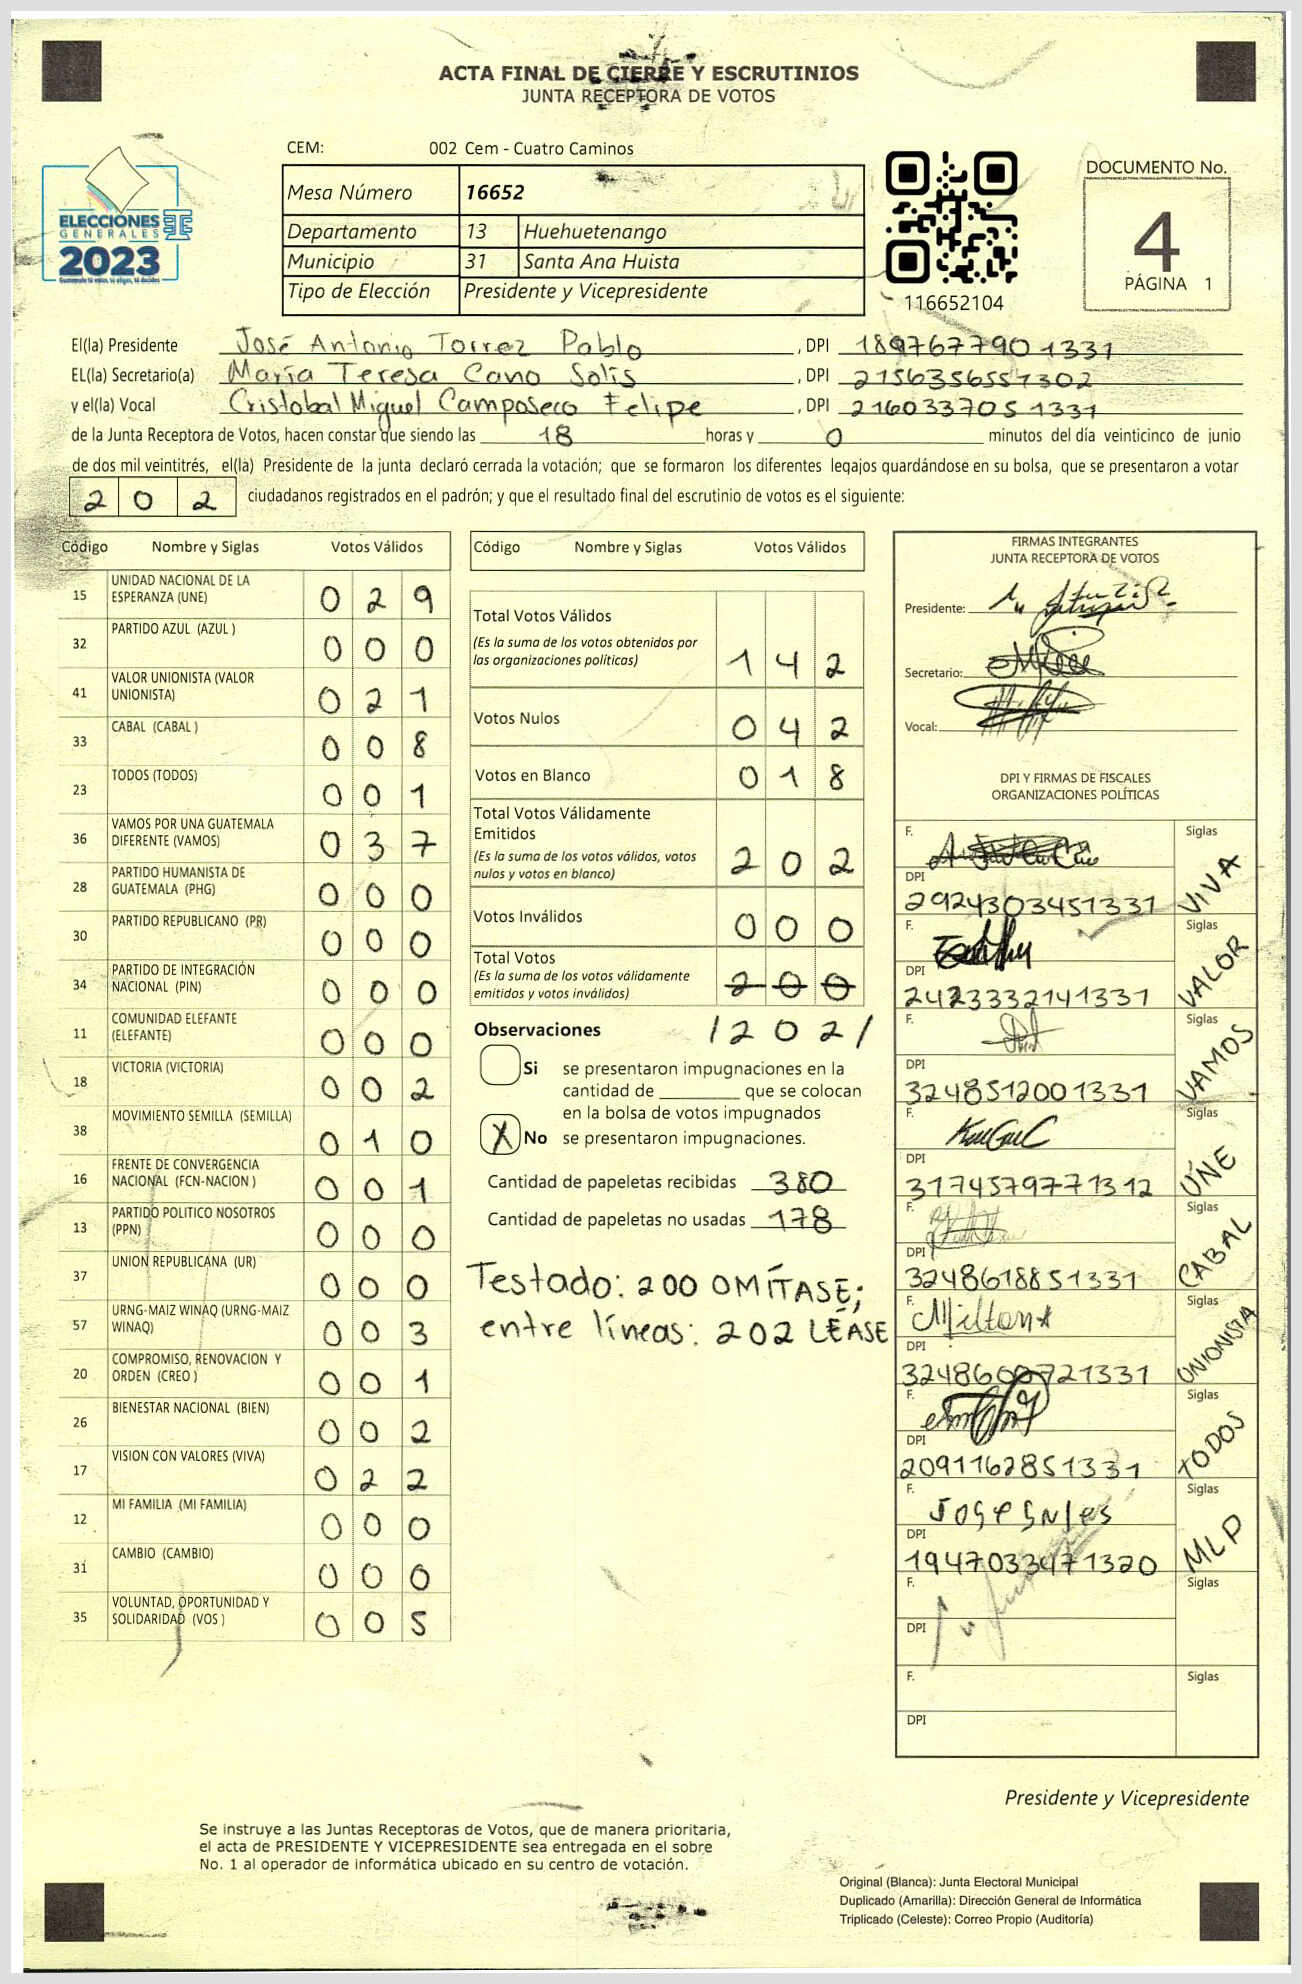 ACTA FINAL DE CIERRE Y ESCRUTINIOS
JUNTA RECEPTORA DE VOTOS
CEM: 002 Cem - Cuatro Caminos
Mesa Número 16652
Departamento 13 Huehuetenango
Municipio 31 Santa Ana Huista
Tipo de Elección Presidente y Vicepresidente
ELECCIONES
GENERALES
2023
116652104
DOCUMENTO No.
4
PÁGINA 1
El(la) Presidente José Antonio Torrez Pablo, DPI 1897677901331
EL(la) Secretario(a) María Teresa Cano Solis, DPI 2156356551302
y el(la) Vocal Cristobal Miguel Camposeco Felipe, DPI 2160337051331
de la Junta Receptora de Votos, hacen constar que siendo las 18 horas y 0 minutos del día veinticinco de junio
de dos mil veintitrés, el(la) Presidente de la junta declaró cerrada la votación; que se formaron los diferentes legajos guardándose en su bolsa, que se presentaron a votar
202 ciudadanos registrados en el padrón; y que el resultado final del escrutinio de votos es el siguiente:
Código Nombre y Siglas Votos Válidos
15 UNIDAD NACIONAL DE LA ESPERANZA (UNE) 029
32 PARTIDO AZUL (AZUL ) 000
41 VALOR UNIONISTA (VALOR UNIONISTA) 021
33 CABAL (CABAL ) 008
23 TODOS (TODOS) 001
36 VAMOS POR UNA GUATEMALA DIFERENTE (VAMOS) 037
28 PARTIDO HUMANISTA DE GUATEMALA (PHG) 000
30 PARTIDO REPUBLICANO (PR) 000
34 PARTIDO DE INTEGRACIÓN NACIONAL (PIN) 000
11 COMUNIDAD ELEFANTE (ELEFANTE) 000
18 VICTORIA (VICTORIA) 002
38 MOVIMIENTO SEMILLA (SEMILLA) 010
16 FRENTE DE CONVERGENCIA NACIONAL (FCN-NACION ) 001
13 PARTIDO POLITICO NOSOTROS (PPN) 000
37 UNION REPUBLICANA (UR) 000
57 URNG-MAIZ WINAQ (URNG-MAIZ WINAQ) 003
20 COMPROMISO, RENOVACION Y ORDEN (CREO ) 001
26 BIENESTAR NACIONAL (BIEN) 002
17 VISION CON VALORES (VIVA) 022
12 MI FAMILIA (MI FAMILIA) 000
31 CAMBIO (CAMBIO) 000
35 VOLUNTAD, OPORTUNIDAD Y SOLIDARIDAD (VOS ) 005
Código Nombre y Siglas Votos Válidos
Total Votos Válidos
(Es la suma de los votos obtenidos por
las organizaciones políticas) 142
Votos Nulos 042
Votos en Blanco 018
Total Votos Válidamente
Emitidos
(Es la suma de los votos válidos, votos
nulos y votos en blanco) 202
Votos Inválidos 000
Total Votos
(Es la suma de los votos válidamente
emitidos y votos inválidos) 200
Observaciones /202/
Si se presentaron impugnaciones en la
cantidad de ________ que se colocan
en la bolsa de votos impugnados
X No se presentaron impugnaciones.
Cantidad de papeletas recibidas 380
Cantidad de papeletas no usadas 178
Testado: 200 OMÍTASE;
entre líneas: 202 LÉASE
FIRMAS INTEGRANTES
JUNTA RECEPTORA DE VOTOS
Presidente:
Secretario:
Vocal:
DPI Y FIRMAS DE FISCALES
ORGANIZACIONES POLÍTICAS
F. Siglas
DPI 2924303451331 VIVA
F. Siglas
DPI 2423332141331 VALOR
F. Siglas
DPI 3248512001331 VAMOS
F. Siglas
DPI 3174579771312 UNE
F. Siglas
DPI 3248618851331 CABAL
F. Milton Siglas
DPI 3248600721331 UNIONISTA
F. Siglas
DPI 2091162851331 TODOS
F. Siglas
DPI 1947033471320 MLP
F. Siglas
DPI
F. Siglas
DPI
Presidente y Vicepresidente
Se instruye a las Juntas Receptoras de Votos, que de manera prioritaria,
el acta de PRESIDENTE Y VICEPRESIDENTE sea entregada en el sobre
No. 1 al operador de informática ubicado en su centro de votación.
Original (Blanca): Junta Electoral Municipal
Duplicado (Amarilla): Dirección General de Informática
Triplicado (Celeste): Correo Propio (Auditoría)